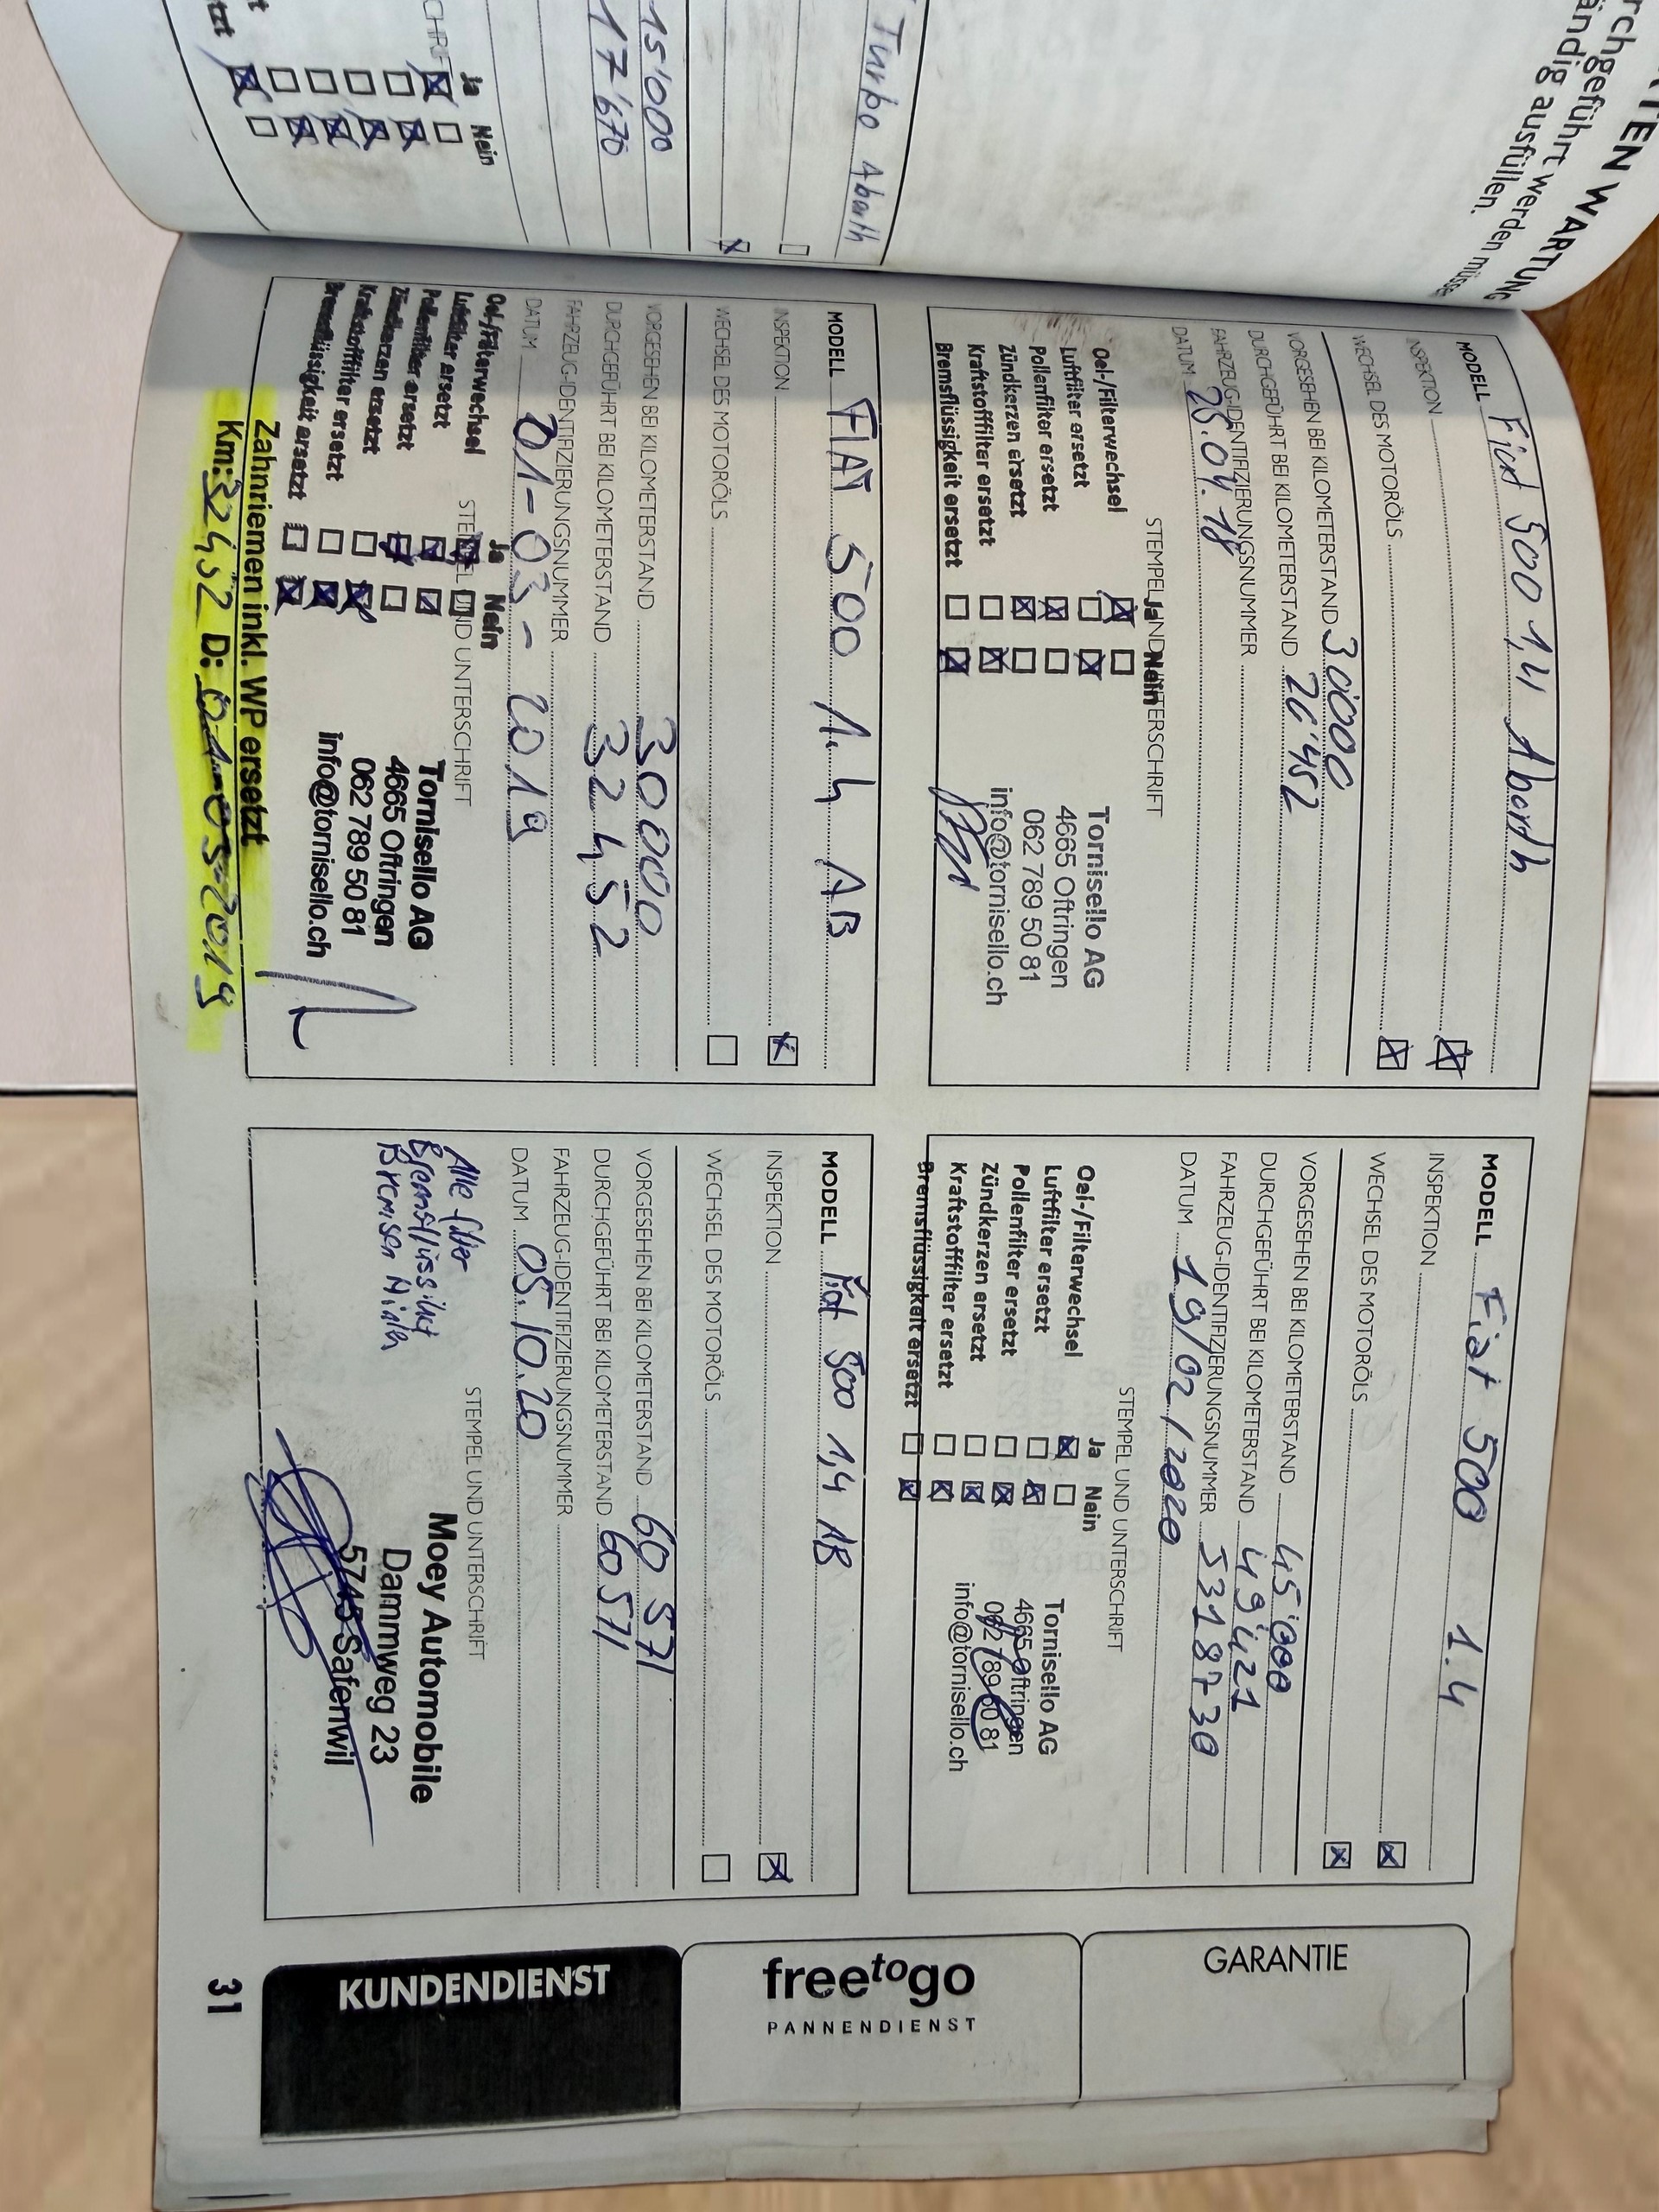 RTEN WARTUNG
rchgeführt werden müsse
ändig ausfüllen.
Turbo Abarth
15'000
17'670
Ja Nein
MODELL Fiat 500 1,4 Abarth
INSPEKTION
WECHSEL DES MOTORÖLS
VORGESEHEN BEI KILOMETERSTAND 30'000
DURCHGEFÜHRT BEI KILOMETERSTAND 26'452
FAHRZEUG-IDENTIFIZIERUNGSNUMMER
DATUM 25.04.18
STEMPEL UND UNTERSCHRIFT
Ja Nein
Oel-/Filterwechsel
Luftfilter ersetzt
Pollenfilter ersetzt
Zündkerzen ersetzt
Kraftstofffilter ersetzt
Bremsflüssigkeit ersetzt
Tornisello AG
4665 Oftringen
062 789 50 81
info@tornisello.ch
MODELL FIAT 500 1.4 AB
INSPEKTION
WECHSEL DES MOTORÖLS
VORGESEHEN BEI KILOMETERSTAND 30000
DURCHGEFÜHRT BEI KILOMETERSTAND 32452
FAHRZEUG-IDENTIFIZIERUNGSNUMMER
DATUM 01-03-2019
STEMPEL UND UNTERSCHRIFT
Ja Nein
Oel-/Filterwechsel
Luftfilter ersetzt
Pollenfilter ersetzt
Zündkerzen ersetzt
Kraftstofffilter ersetzt
Bremsflüssigkeit ersetzt
Tornisello AG
4665 Oftringen
062 789 50 81
info@tornisello.ch
Zahnriemen inkl. WP ersetzt
Km: 32452 D: 01-03-2019
MODELL Fiat 500 1.4
INSPEKTION
WECHSEL DES MOTORÖLS
VORGESEHEN BEI KILOMETERSTAND 45'000
DURCHGEFÜHRT BEI KILOMETERSTAND 49421
FAHRZEUG-IDENTIFIZIERUNGSNUMMER 5318730
DATUM 19/02/2020
STEMPEL UND UNTERSCHRIFT
Ja Nein
Oel-/Filterwechsel
Luftfilter ersetzt
Pollenfilter ersetzt
Zündkerzen ersetzt
Kraftstofffilter ersetzt
Bremsflüssigkeit ersetzt
Tornisello AG
4665 Oftringen
062 789 50 81
info@tornisello.ch
MODELL Fiat 500 1,4 AB
INSPEKTION
WECHSEL DES MOTORÖLS
VORGESEHEN BEI KILOMETERSTAND 60 571
DURCHGEFÜHRT BEI KILOMETERSTAND 60 571
FAHRZEUG-IDENTIFIZIERUNGSNUMMER
DATUM 05.10.20
STEMPEL UND UNTERSCHRIFT
Alle filter
Bremsflüssikt
Bremsen Hinten
Moey Automobile
Dammweg 23
5745 Safenwil
GARANTIE
freetogo
PANNENDIENST
KUNDENDIENST
31